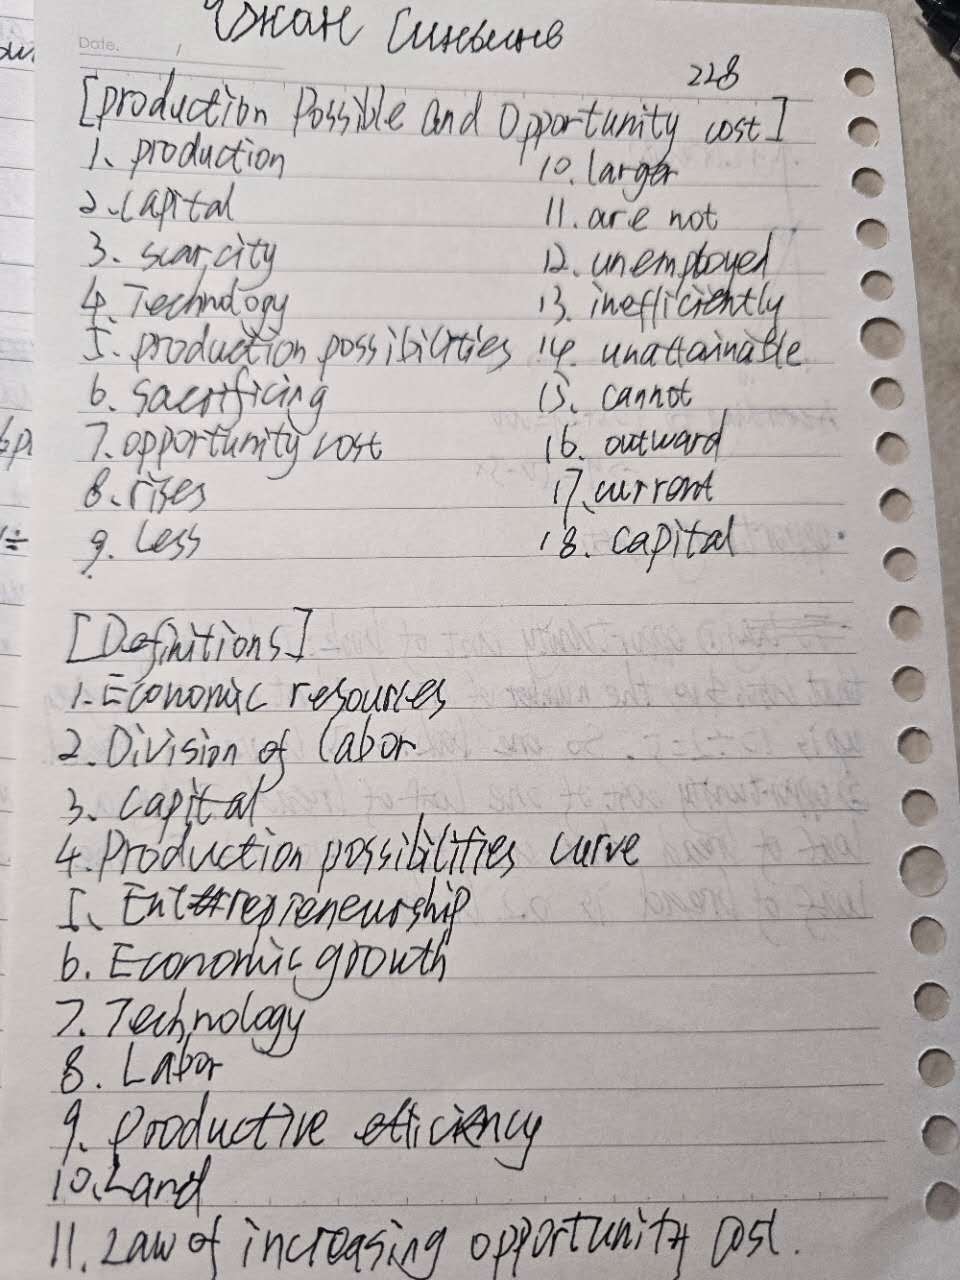 Чжан Синьинв
Date.
228
[production Possible and Opportunity cost]
1. production
2. capital
3. scarcity
4. Technology
5. production possibilities
6. sacrificing
7. opportunity cost
8. rises
9. Less
10. larger
11. are not
12. unemployed
13. inefficiently
14. unattainable
15. cannot
16. outward
17. current
18. capital
[Definitions]
1. Economic resources
2. Division of labor
3. capital
4. Production possibilities curve
5. Entrepreneurship
6. Economic growth
7. Technology
8. Labor
9. productive efficiency
10. Land
11. Law of increasing opportunity cost.